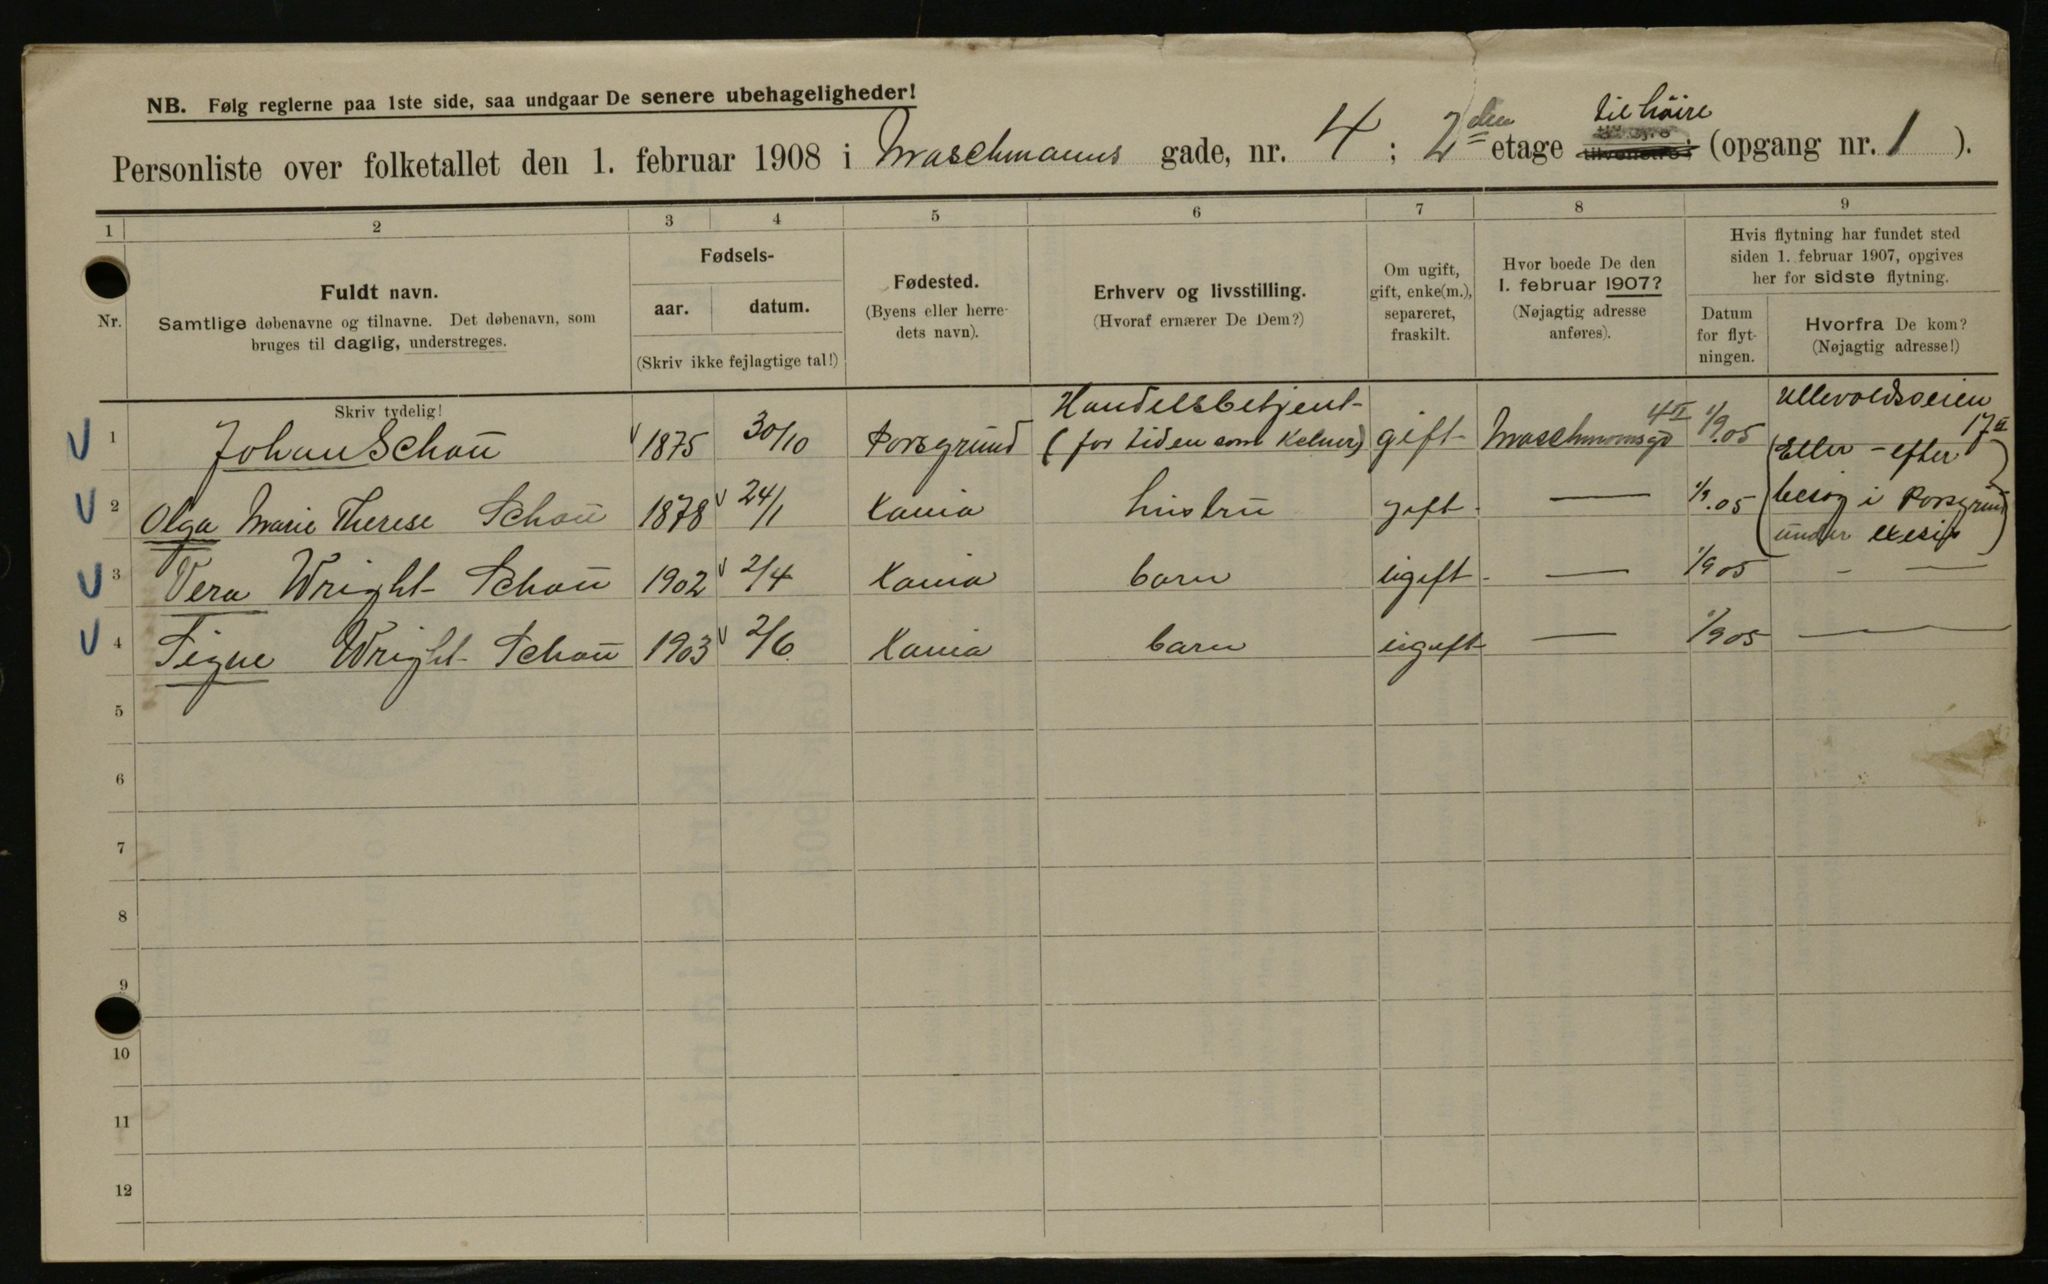 NB. Følg reglerne paa 1ste side, saa undgaar De senere ubehageligheder!
til höire
Personliste over folketallet den 1. februar 1908 i Maschmanns gade, nr. 4; 2den etage tilvenstre (opgang nr. 1).
1 2 3 4 5 6 7 8 9
Nr.
Fuldt navn.
Samtlige døbenavne og tilnavne. Det døbenavn, som
bruges til daglig, understreges.
Skriv tydelig!
Fødsels-
aar. datum.
(Skriv ikke fejlagtige tal!)
Fødested.
(Byens eller herre-
dets navn).
Erhverv og livsstilling.
(Hvoraf ernærer De Dem?)
Om ugift,
gift, enke(m.),
separeret,
fraskilt.
Hvor boede De den
1. februar 1907?
(Nøjagtig adresse
anføres).
Hvis flytning har fundet sted
siden 1. februar 1907, opgives
her for sidste flytning.
Datum
for flyt-
ningen.
Hvorfra De kom?
(Nøjagtig adresse!)
Handelsbetjent- 4 II Ullevoldsveien
1 Johan Schoü 1875 30/10 Porsgrund (for tiden som Kelner) gift Maschmansgd 1/9.05 17 II
(Eller - efter
2 Olga Marie Therese Schoü 1878 24/1 Kania hüstrü gift — 1/9.05 besøg i Porsgrund
ünder exesis)
3 Vera Wright Schoü 1902 2/4 Kania barn ügift — 1/9 05 - —
4 Signe Wright Schoü 1903 2/6 Kania barn ügift — 1/9 05 —
5
6
7
8
9
10
11
12